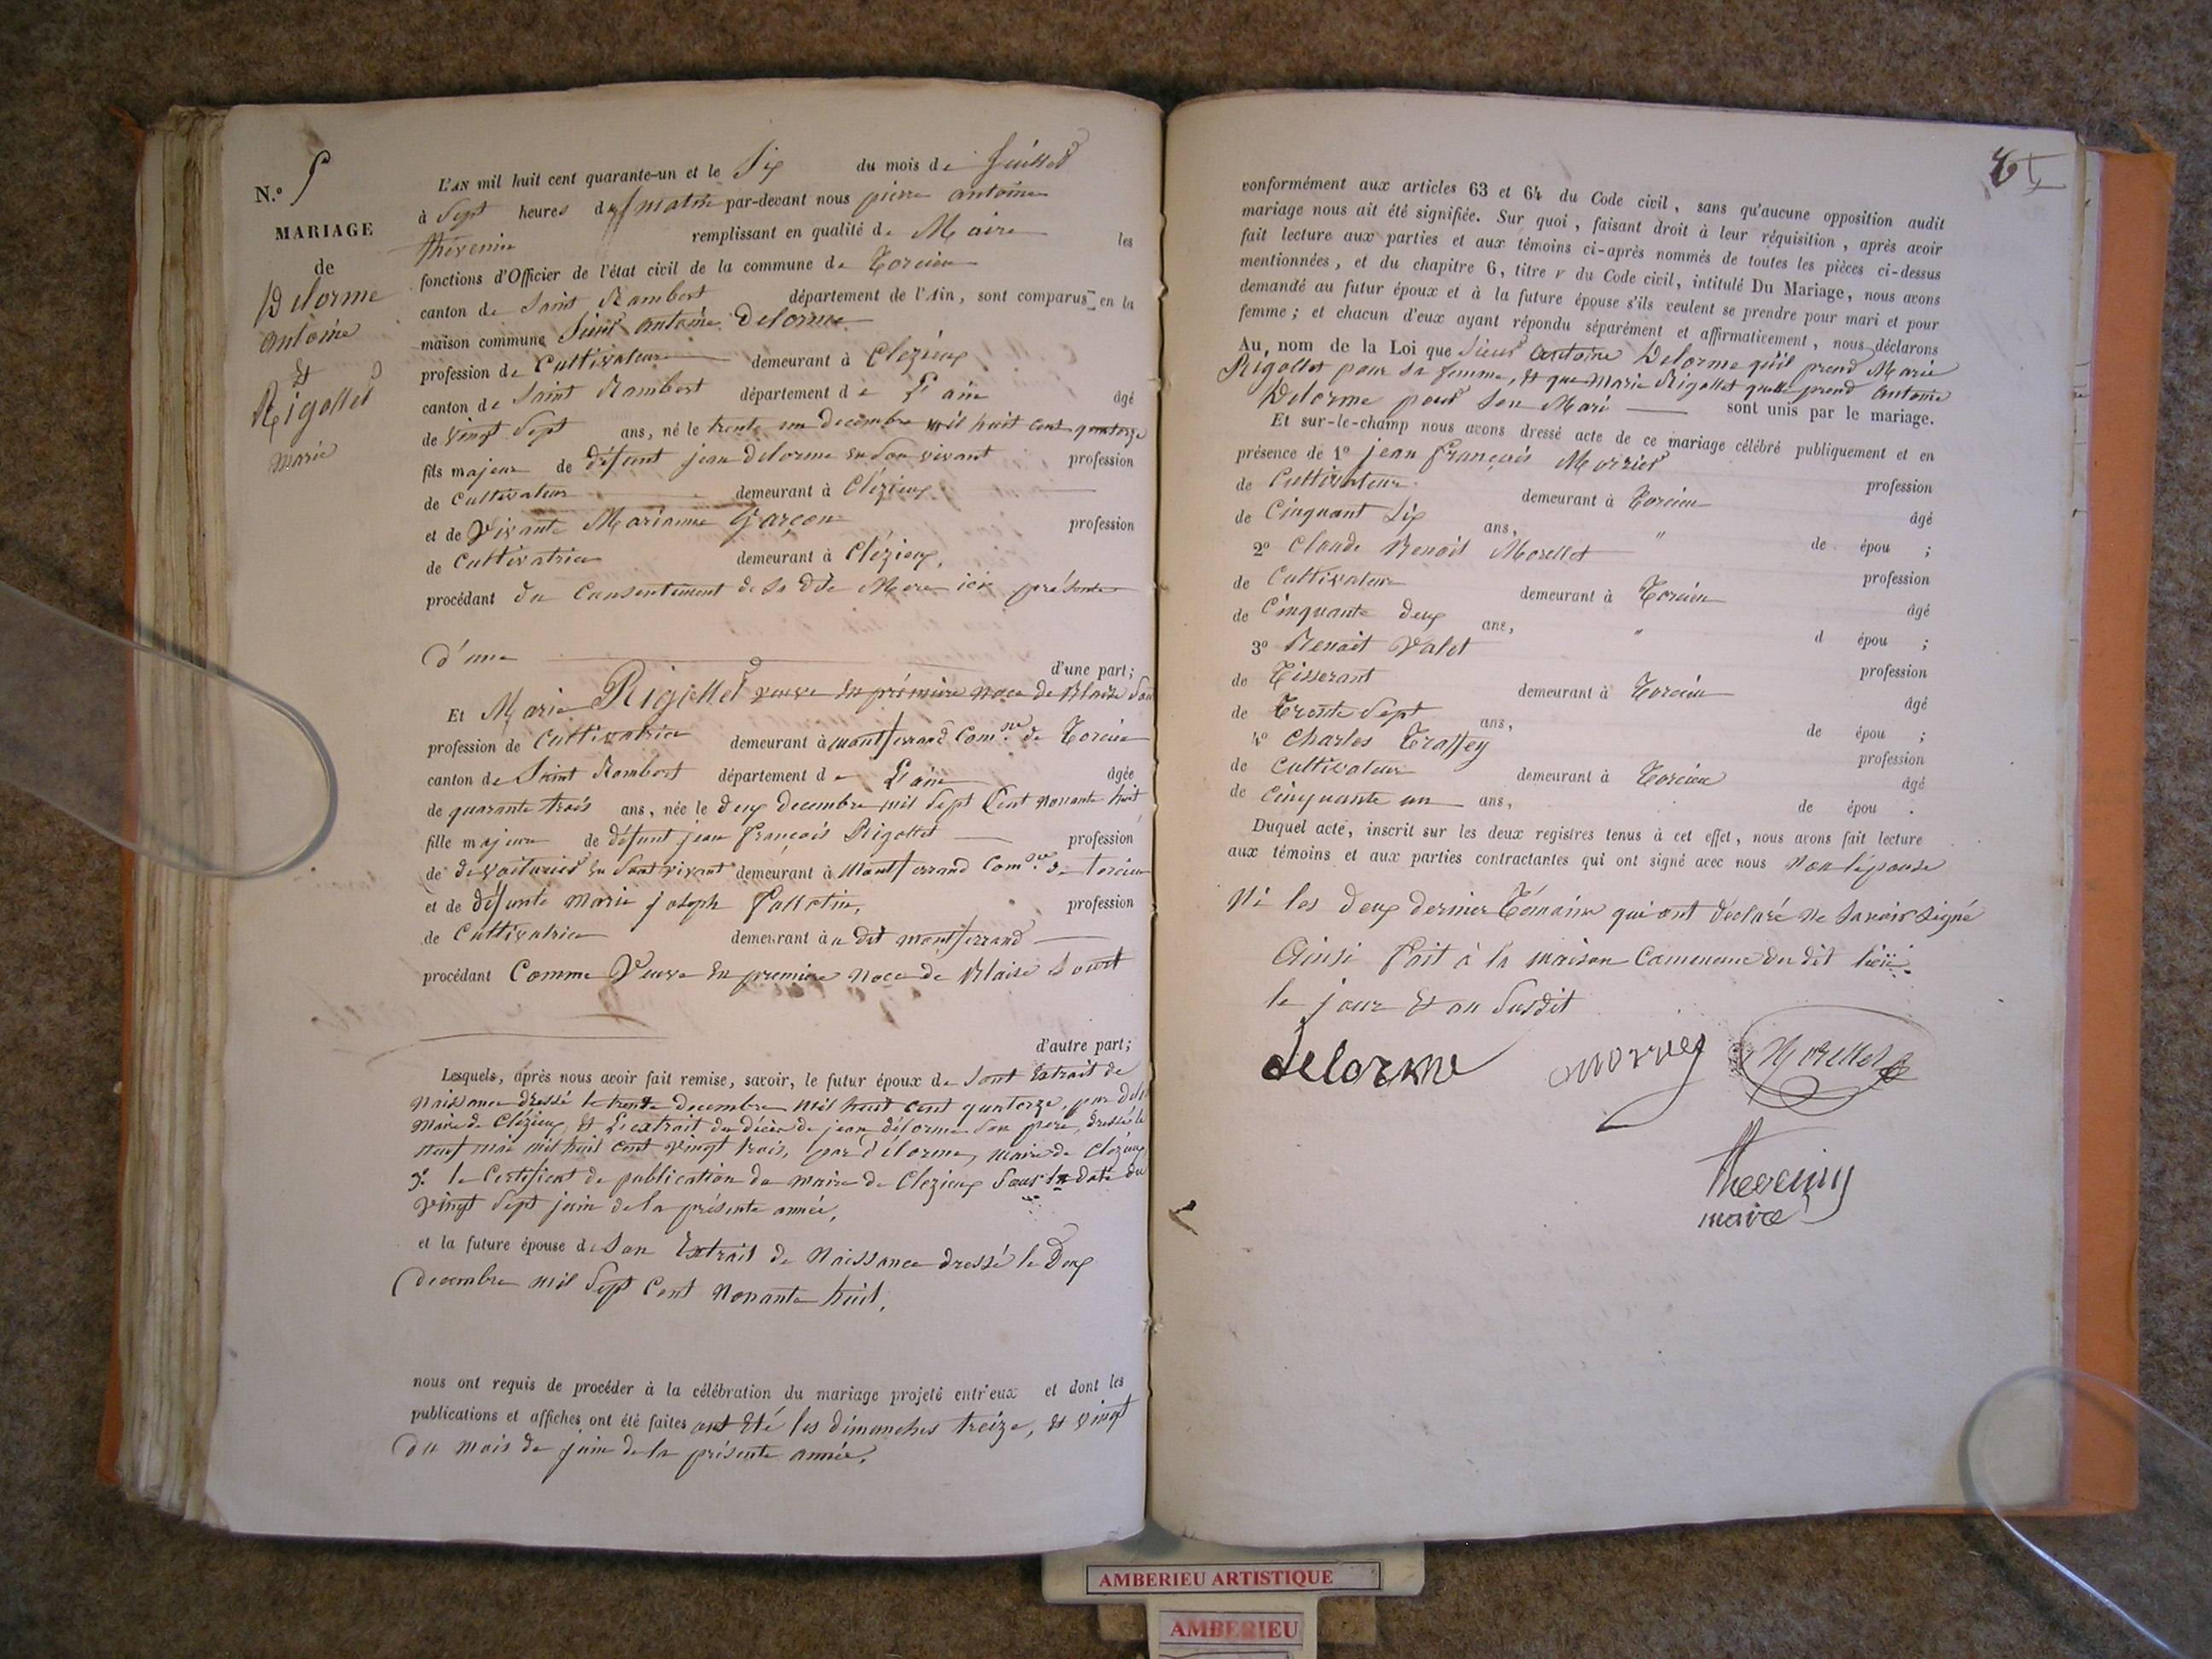 N.º 5
MARIAGE
de
Delorme
antoine
Et
Rigollet
Marie
L'AN mil huit cent quarante-un et le Six du mois de Juillet
à Sept heures du matin par-devant nous pierre antoine
thévenin remplissant en qualité de Maire les
fonctions d'Officier de l'état civil de la commune de Torcieu
canton de Saint Rambert département de l'Ain, sont comparus en la
maison commune Sieur antoine Delorme
profession de Cultivateur demeurant à Clezieux
canton de Saint Rambert département de L'ain âgé
de vingt Sept ans, né le trente un decembre mil huit cent quatorze
fils majeur de défunt jean delorme en Son vivant profession
de Cultivateur demeurant à Clézieux
et de Vivante Marianne Garçon profession
de Cultivatrice demeurant à Clézieux,
procédant du Consentement de Sa dite Mere ici présente
d'une d'une part;
Et Marie Rigollet veuve En prémière noce de Blaise
profession de Cultivatrice demeurant à montferrand Com.ne de Torcieu
canton de Saint Rambert département de L'ain âgée
de quarante trois ans, née le deux decembre mil Sept Cent nonante huit
fille majeure de défunt jean François Rigollet profession
de de voiturier En Sont vivant demeurant à Montferrand Com.ne de torcieu
et de défunte Marie joseph profession
de Cultivatrice demeurant à u dit montferrand
procédant Comme Veuve En premiere noce de Blaise
d'autre part;
Lesquels, après nous avoir fait remise, savoir, le futur époux de Sont Extrait de
Naissance dressé le trente decembre mil huit cent quatorze, par
Maire de Clézieux, Et L'extrait du décès de jean délorme Son pere, dressé le
neuf mai mil huit cent vingt trois, par délorme, maire de Clézieux
3.º le Certificat de publication du maire de Clezieux Sous la date du
vingt Sept juin de la présente année,
et la future épouse de Son Extrait de Naissance dressé le Deux
decembre mil Sept Cent Nonante huit,
nous ont requis de procéder à la célébration du mariage projeté entr'eux et dont les
publications et affiches ont été faites ont Eté les dimanches treize, Et vingt
du mois de juin de la présente année,
conformément aux articles 63 et 64 du Code civil, sans qu'aucune opposition audit
mariage nous ait été signifiée. Sur quoi, faisant droit à leur réquisition, après avoir
fait lecture aux parties et aux témoins ci-après nommés de toutes les pièces ci-dessus
mentionnées, et du chapitre 6, titre v du Code civil, intitulé Du Mariage, nous avons
demandé au futur époux et à la future épouse s'ils veulent se prendre pour mari et pour
femme; et chacun d'eux ayant répondu séparément et affirmativement, nous déclarons
Au nom de la Loi que Sieur Antoine Delorme qu'il prend Marie
Rigollet pour Sa femme, Et que Marie Rigollet quelle prend Antoine
Delorme pour Son Mari sont unis par le mariage.
Et sur-le-champ nous avons dressé acte de ce mariage célébré publiquement et en
présence de 1º jean françois Morrier profession
de Cultivateur demeurant à Torcieu âgé
de Cinquant Six ans, " de épou ;
2º Claude Benoit Morellet profession
de Cultivateur demeurant à Torcieu âgé
de Cinquante deux ans, " d épou ;
3º Benoit Valet profession
de Tisserant demeurant à Torcieu âgé
de Trente Sept ans, de épou ;
4º Charles Traffey profession
de Cultivateur demeurant à Torcieu âgé
de Cinquante un ans, de épou .
Duquel acte, inscrit sur les deux registres tenus à cet effet, nous avons fait lecture
aux témoins et aux parties contractantes qui ont signé avec nous Non l'épouse
Ni les deux dernier Témoins qui ont déclaré ne Savoir Signé
Ainsi Fait à la maison Commune du dit lieu
le jour Et an Susdit
delorme
morrier
Morellet
thevenin
maire
AMBERIEU ARTISTIQUE
AMBERIEU